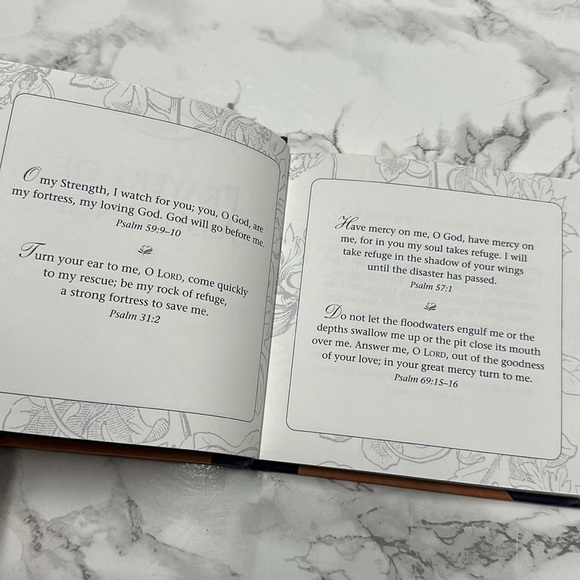 O my Strength, I watch for you; you, O God, are
my fortress, my loving God. God will go before me.
Psalm 59:9–10
Turn your ear to me, O LORD, come quickly
to my rescue; be my rock of refuge,
a strong fortress to save me.
Psalm 31:2
Have mercy on me, O God, have mercy on
me, for in you my soul takes refuge. I will
take refuge in the shadow of your wings
until the disaster has passed.
Psalm 57:1
Do not let the floodwaters engulf me or the
depths swallow me up or the pit close its mouth
over me. Answer me, O LORD, out of the goodness
of your love; in your great mercy turn to me.
Psalm 69:15–16